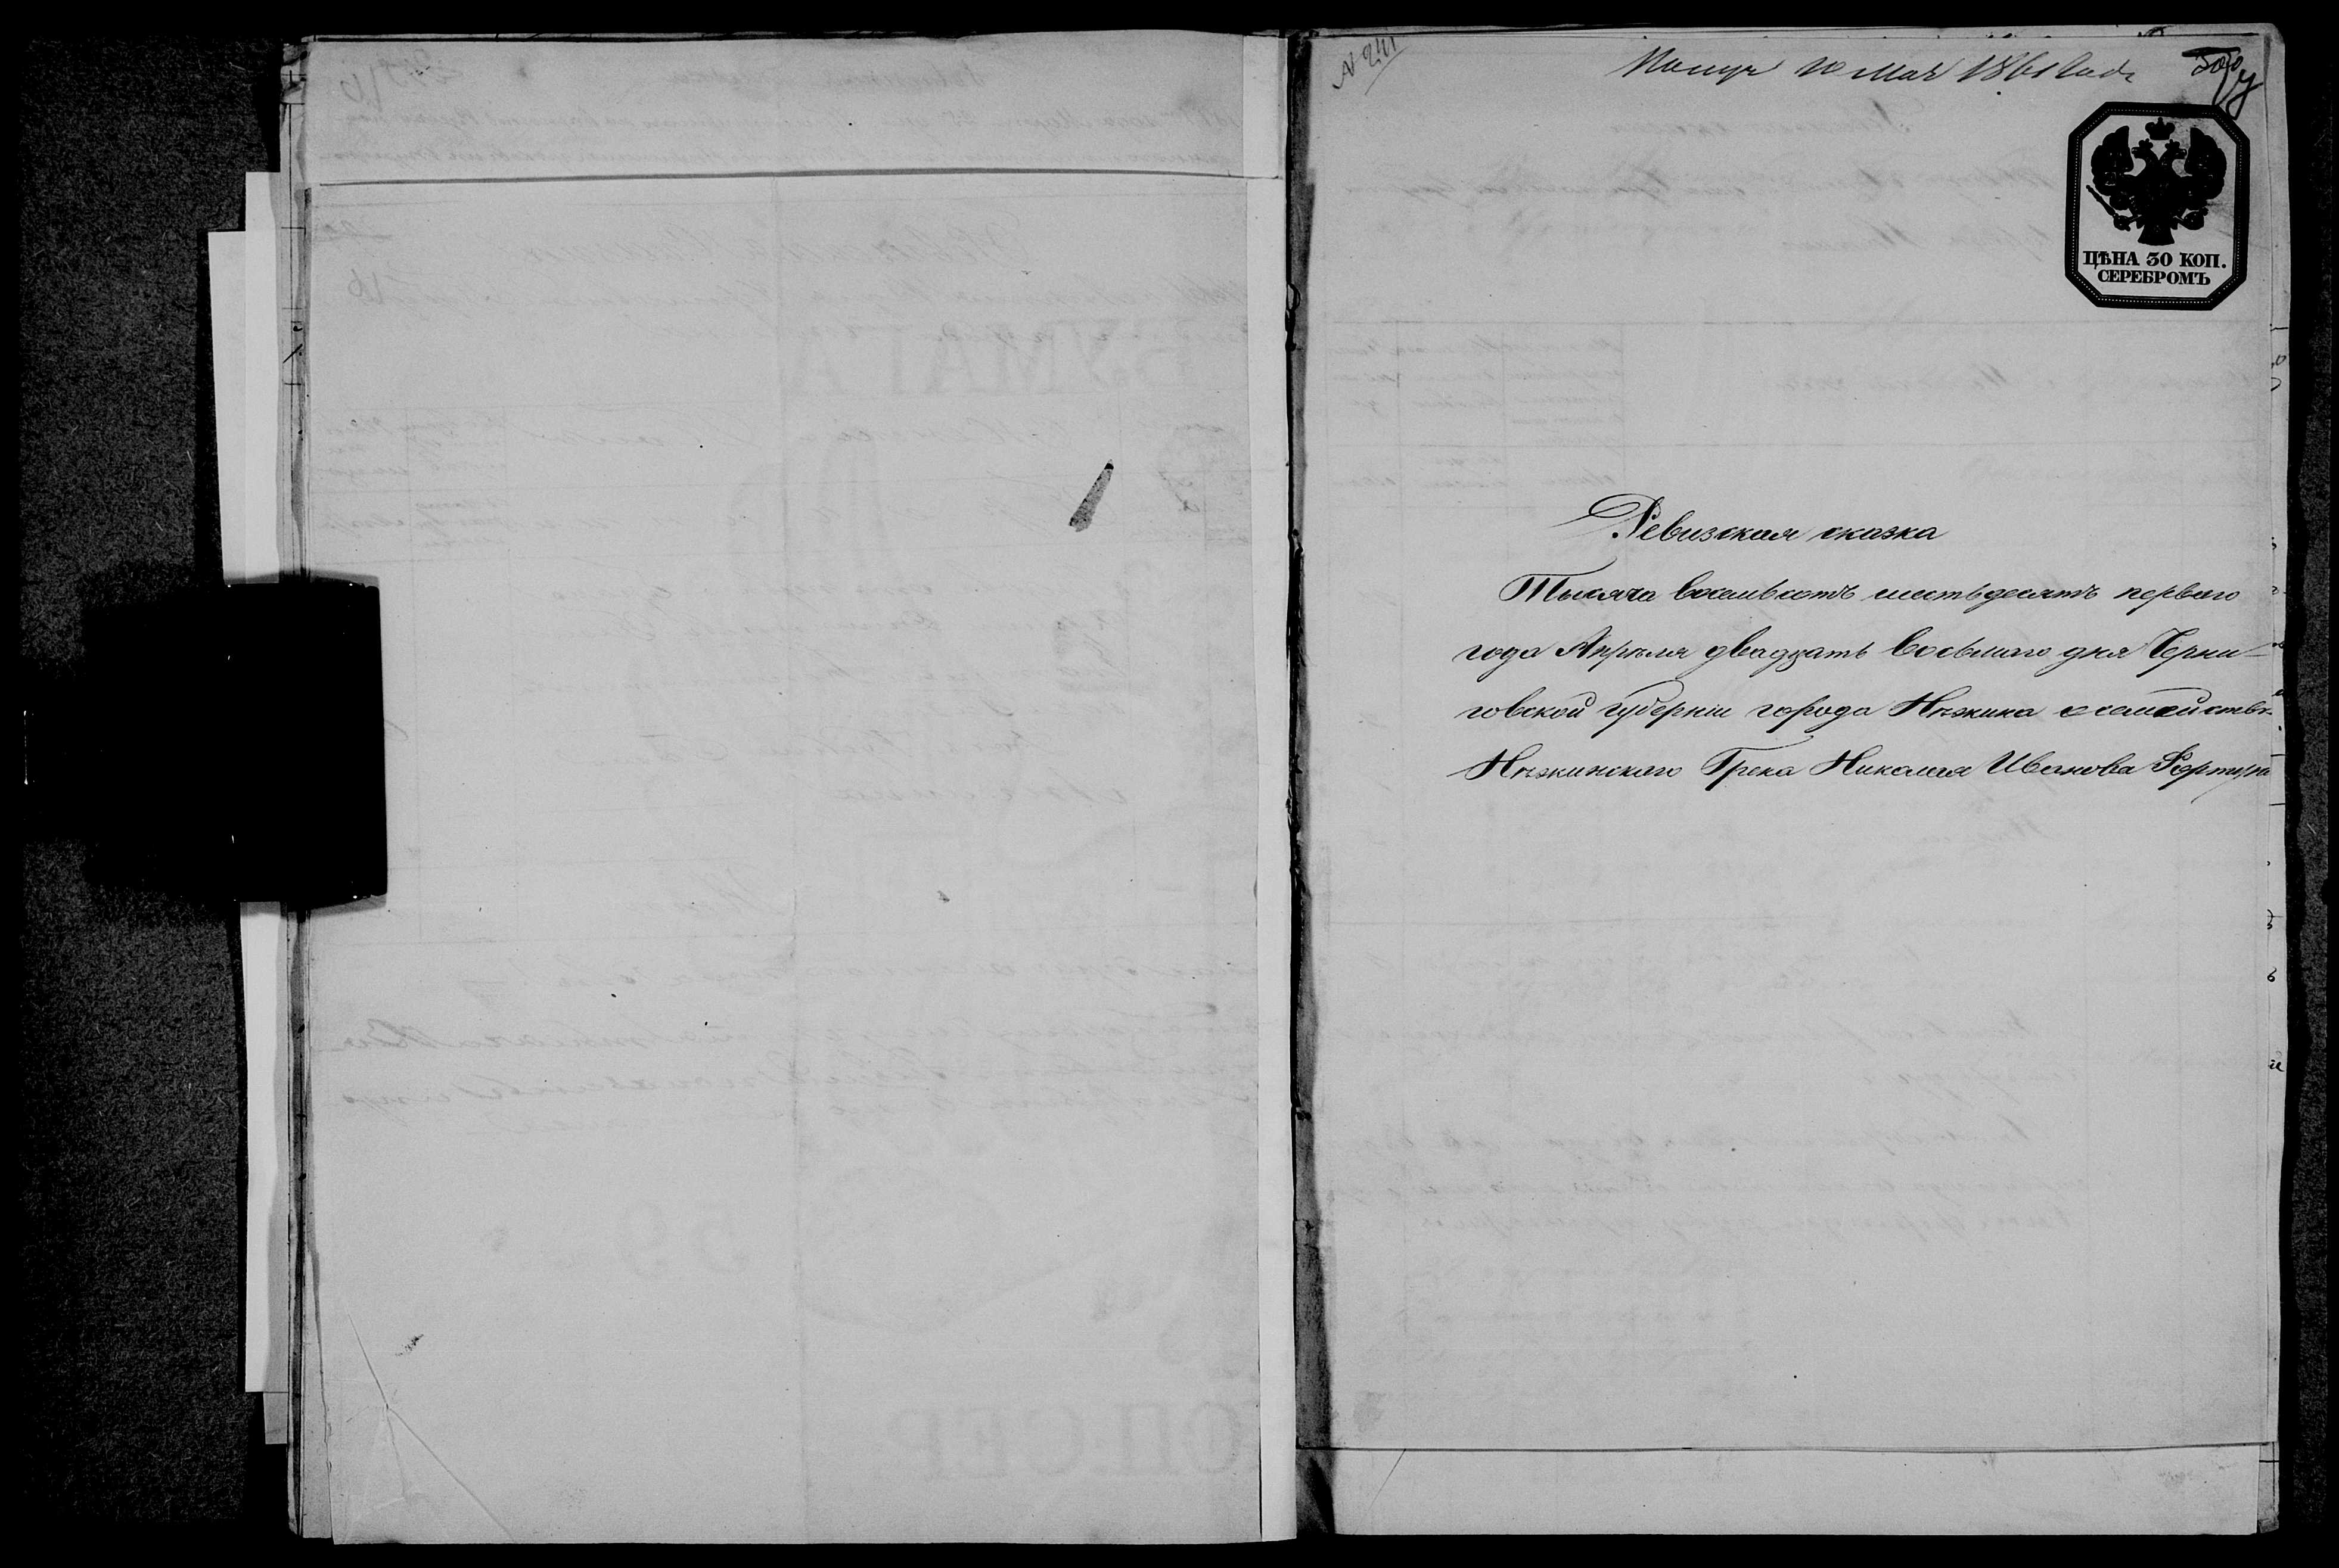 N 241
Получ 10 Мая 1861 года
ЦѢНА 30 КОП.
СЕРЕБРОМЪ
Ревизская сказка
Тысяча восемьсотъ шестьдесятъ перваго
года Апрѣля двадцать восьмаго дня Черни-
говской губерніи города Нѣжина о семействѣ
Нѣжинскаго Грека Николая Иванова